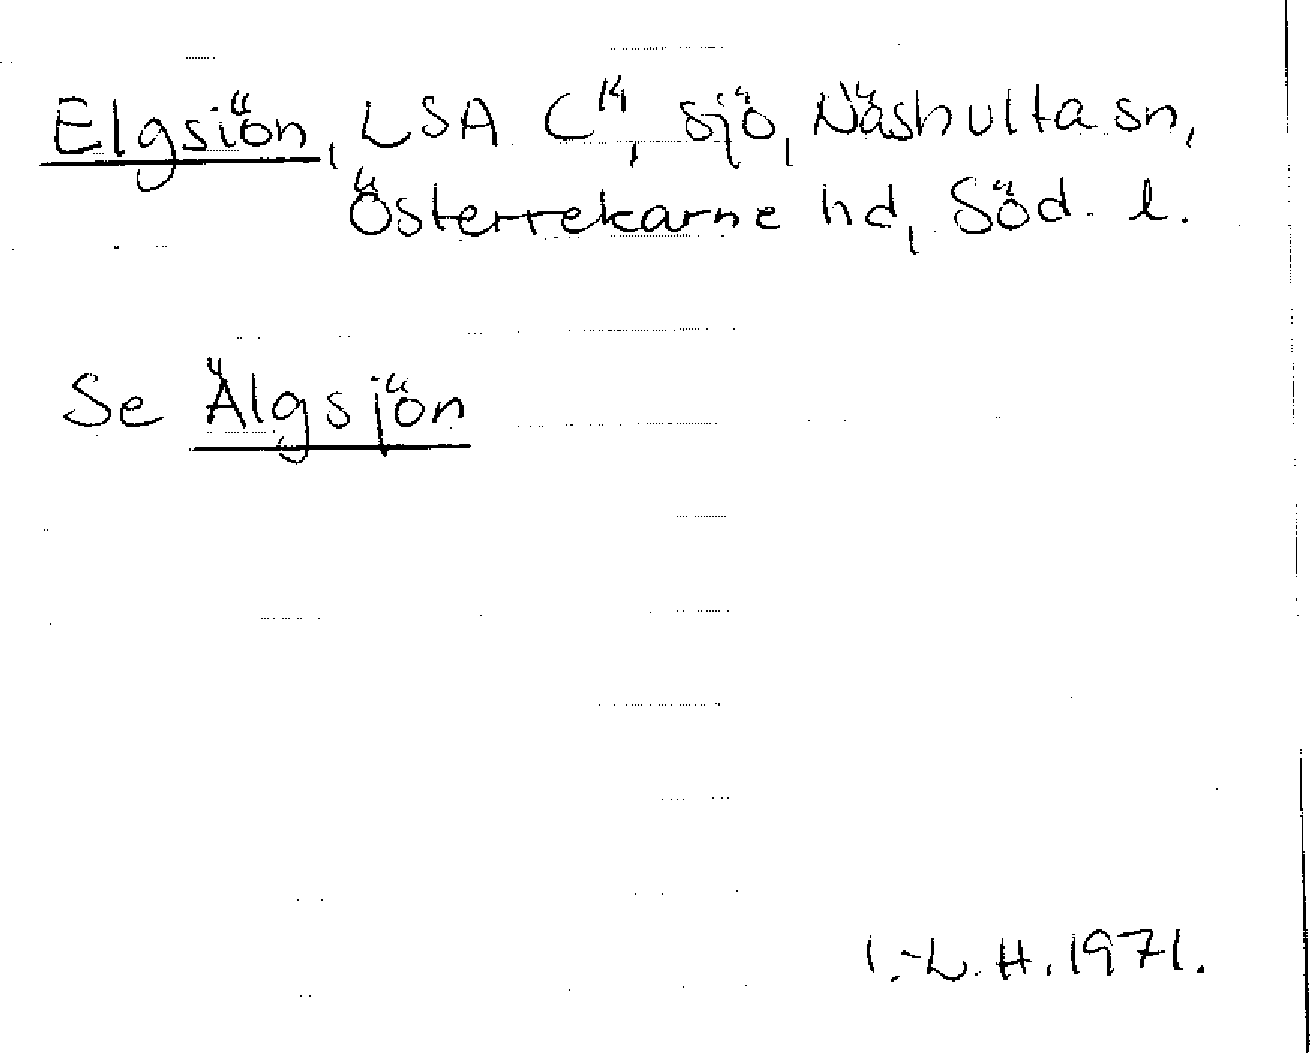 Elgsiön, LSA C¹⁴, sjö, Näshulta sn,
Österrekarne hd, Söd. l.
Se Älgsjön
I.-L. H. 1971.